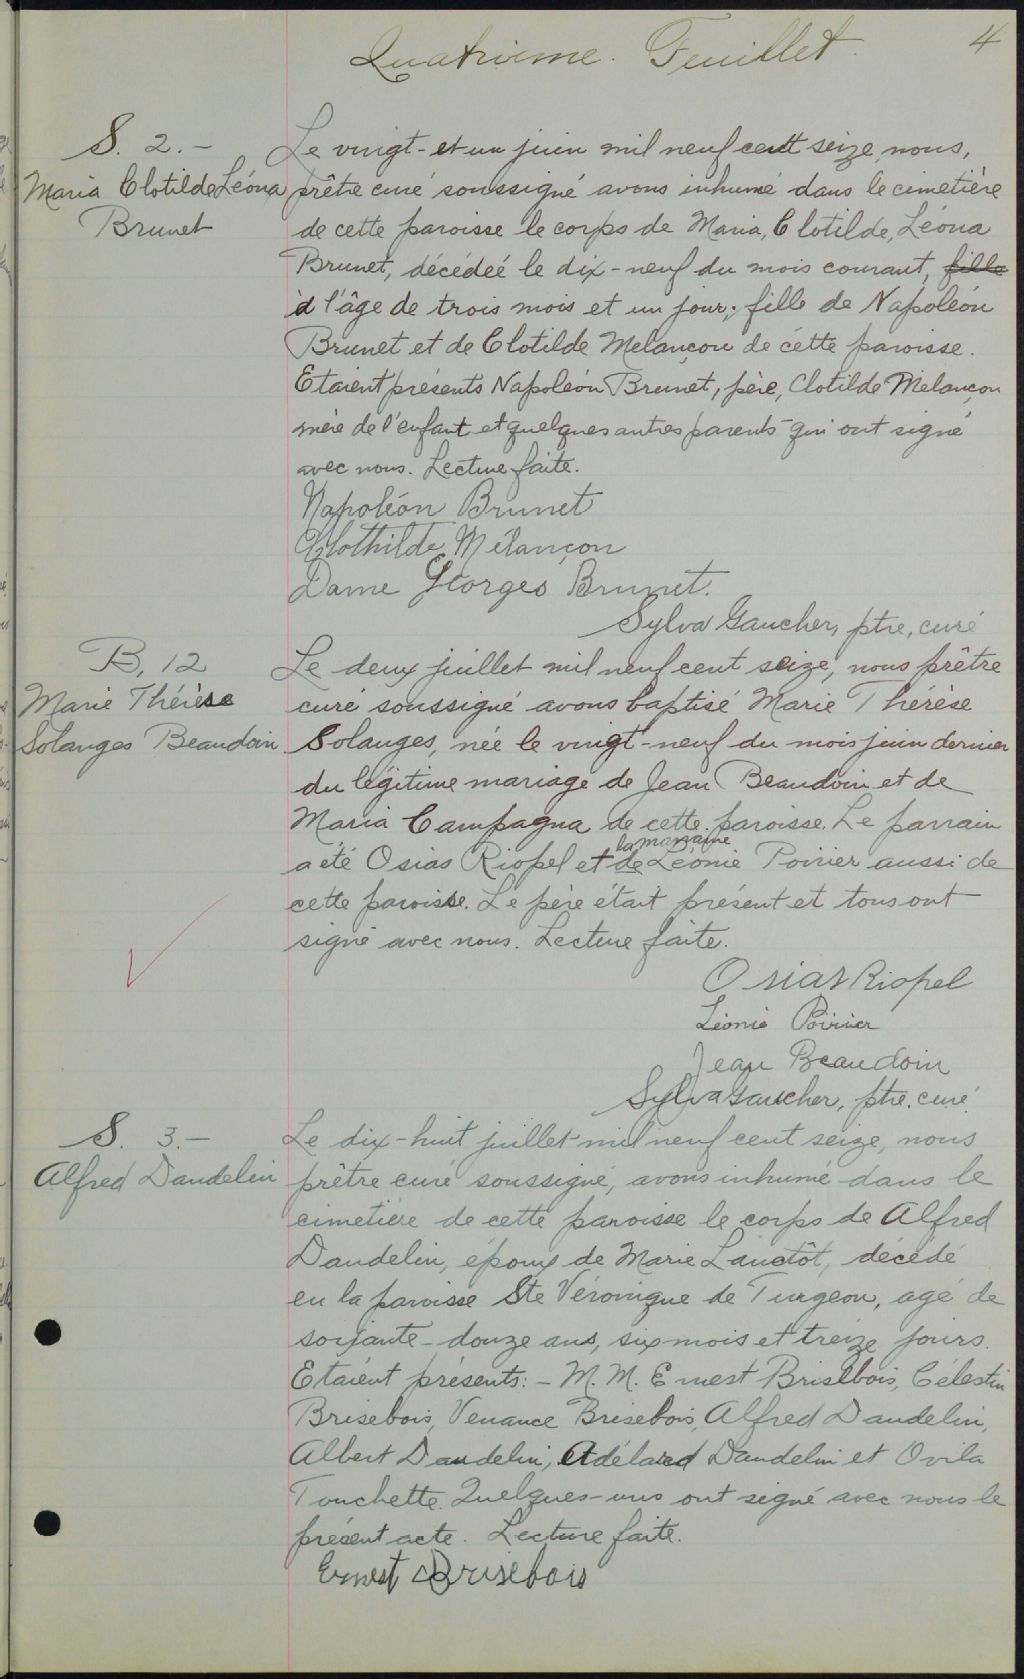 Quatrième. Feuillet. 4
S. 2. –
Maria Clotilde Léona
Brunet
Le vingt-et-un juin mil neuf cent seize, nous,
prêtre curé soussigné avons inhumé dans le cimetière
de cette paroisse le corps de Maria, Clotilde, Léona
Brunet, décédeé le dix-neuf du mois courant, fille
à l'âge de trois mois et un jour; fille de Napoléon
Brunet et de Clotilde Melançon de cétte paroisse.
Etaient présents Napoléon Brunet, père, Clotilde Melançon
mère de l'enfant et quelques autres parents qui ont signé
avec nous. Lecture faite.
Napoléon Brunet
Clothilde Mélançon
Dame Georges Brunet.
Sylva Gaucher, ptre, curé
B, 12
Marie Thérèse
Solanges Beaudoin
Le deux juillet mil neuf cent seize, nous prêtre
curé soussigné avons baptisé Marie Thérèse
Solanges, née le vingt-neuf du mois juin dernier
du légitime mariage de Jean Beaudoin et de
Maria Campagna de cette paroisse. Le parrain
la marraine
a été Osias Riopel et de Léonie Poirier aussi de
cette paroisse. Le père était présent et tous ont
signé avec nous. Lecture faite.
Osias Riopel
Léonie Poirier
Jean Beaudoin
Sylva Gaucher, ptre. curé
S. 3. –
Alfred Dandelin
Le dix-huit juillet mil neuf cent seize, nous
prêtre curé soussigné, avons inhumé dans le
cimetière de cette paroisse le corps de Alfred
Dandelin, époux de Marie Lanctôt, décédé
en la paroisse Ste Véronique de Turgeon, agé de
soixante-douze ans, six mois et treize jours.
Etaient présents: – M. M. Ernest Brisebois, Célestin
Brisebois, Venance Brisebois, Alfred Dandelin,
Albert Dandelin, Adélard Dandelin et Ovila
Touchette. Quelques-uns ont signé avec nous le
présent acte. Lecture faite.
Ernest Brisebois